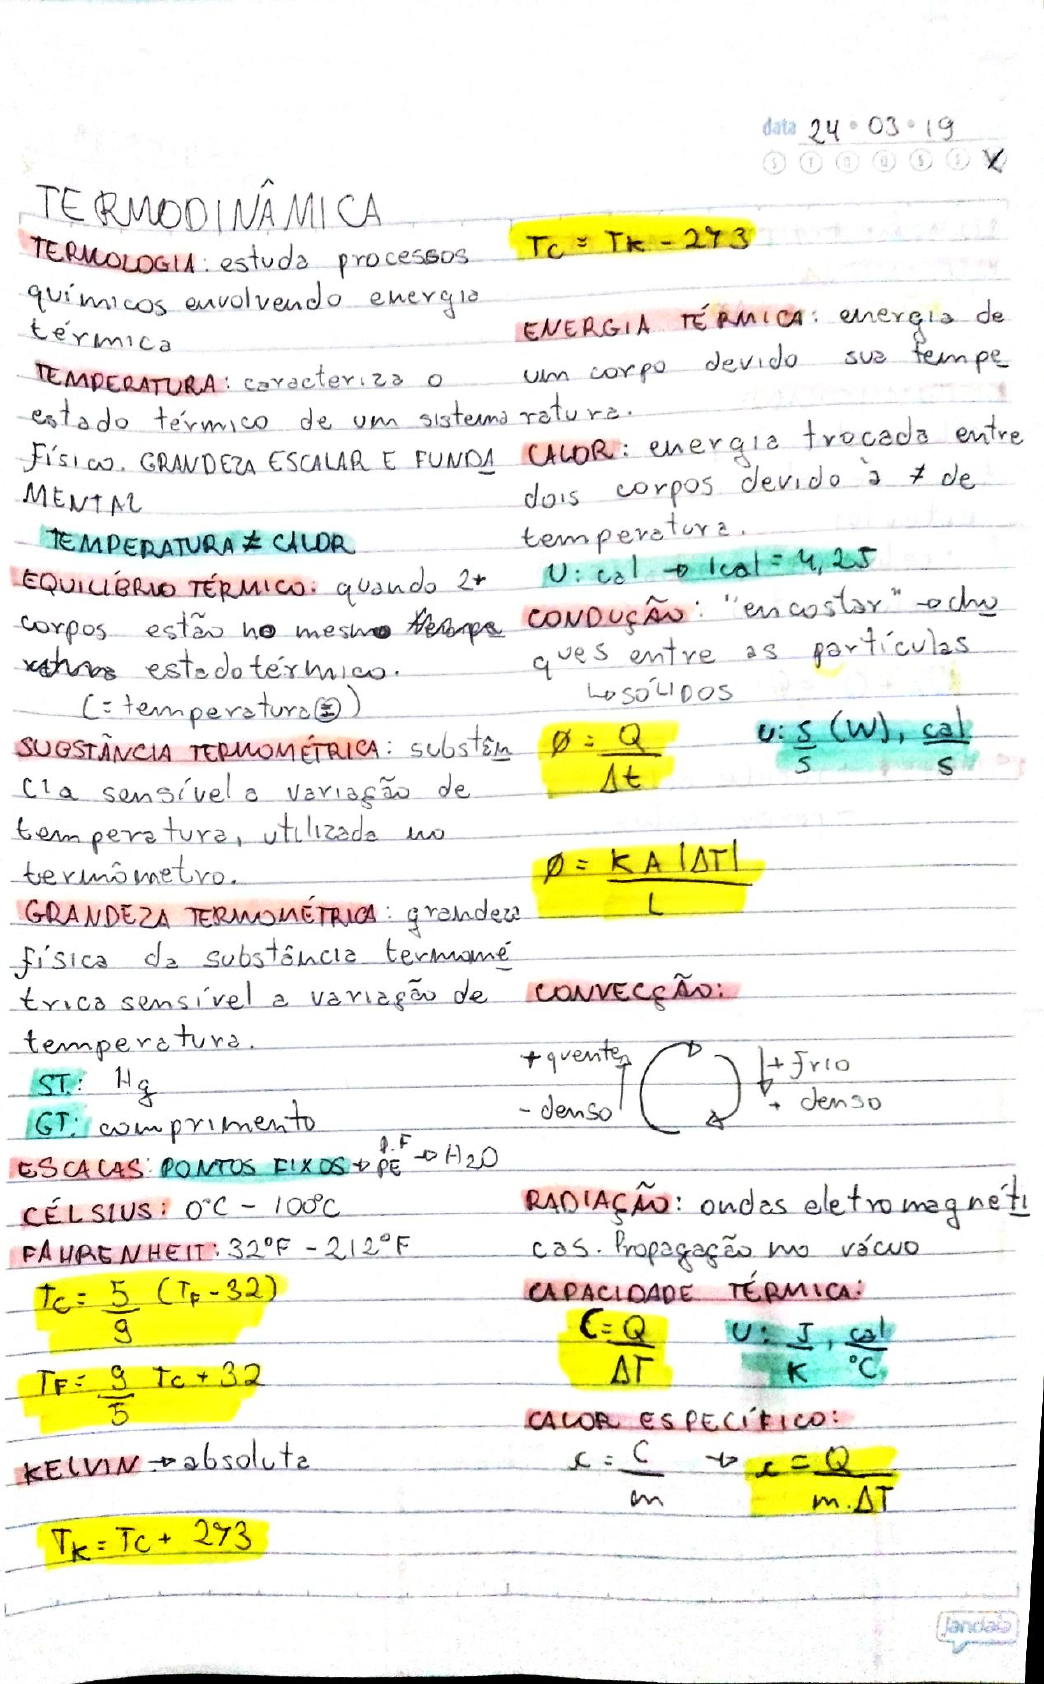 data 24 • 03 • 19
TERMODINÂMICA
TERMOLOGIA: estuda processos
químicos envolvendo energia
térmica
TEMPERATURA: caracteriza o
estado térmico de um sistema
físico. GRANDEZA ESCALAR E FUNDA
MENTAL
TEMPERATURA ≠ CALOR
EQUILÍBRIO TÉRMICO: quando 2+
corpos estão no mesmo
estado térmico.
(= temperatura)
SUBSTÂNCIA TERMOMÉTRICA: substân
cia sensível a variação de
temperatura, utilizada no
termômetro.
GRANDEZA TERMOMÉTRICA: grandeza
física da substância termomé
trica sensível a variação de
temperatura.
ST: Hg
GT: comprimento
ESCALAS: PONTOS FIXOS → P.F PE → H2O
CÉLSIUS: 0°C - 100°C
FAHRENHEIT: 32°F - 212°F
Tc = 5/9 (TF - 32)
TF = 9/5 Tc + 32
KELVIN → absoluta
TK = Tc + 273
Tc = TK - 273
ENERGIA TÉRMICA: energia de
um corpo devido sua tempe
ratura.
CALOR: energia trocada entre
dois corpos devido à ≠ de
temperatura.
U: cal → 1cal = 4,2J
CONDUÇÃO: "encostar" → cho
ques entre as partículas
↳ SÓLIDOS
Ø = Q/Δt U: J/s (W), cal/s
Ø = K A |ΔT|/L
CONVECÇÃO:
+ quente + frio
- denso + denso
RADIAÇÃO: ondas eletromagnéti
cas. Propagação no vácuo
CAPACIDADE TÉRMICA:
C = Q/ΔT U: J/K, cal/°C
CALOR ESPECÍFICO:
c = C/m → c = Q/m.ΔT
Jandaia